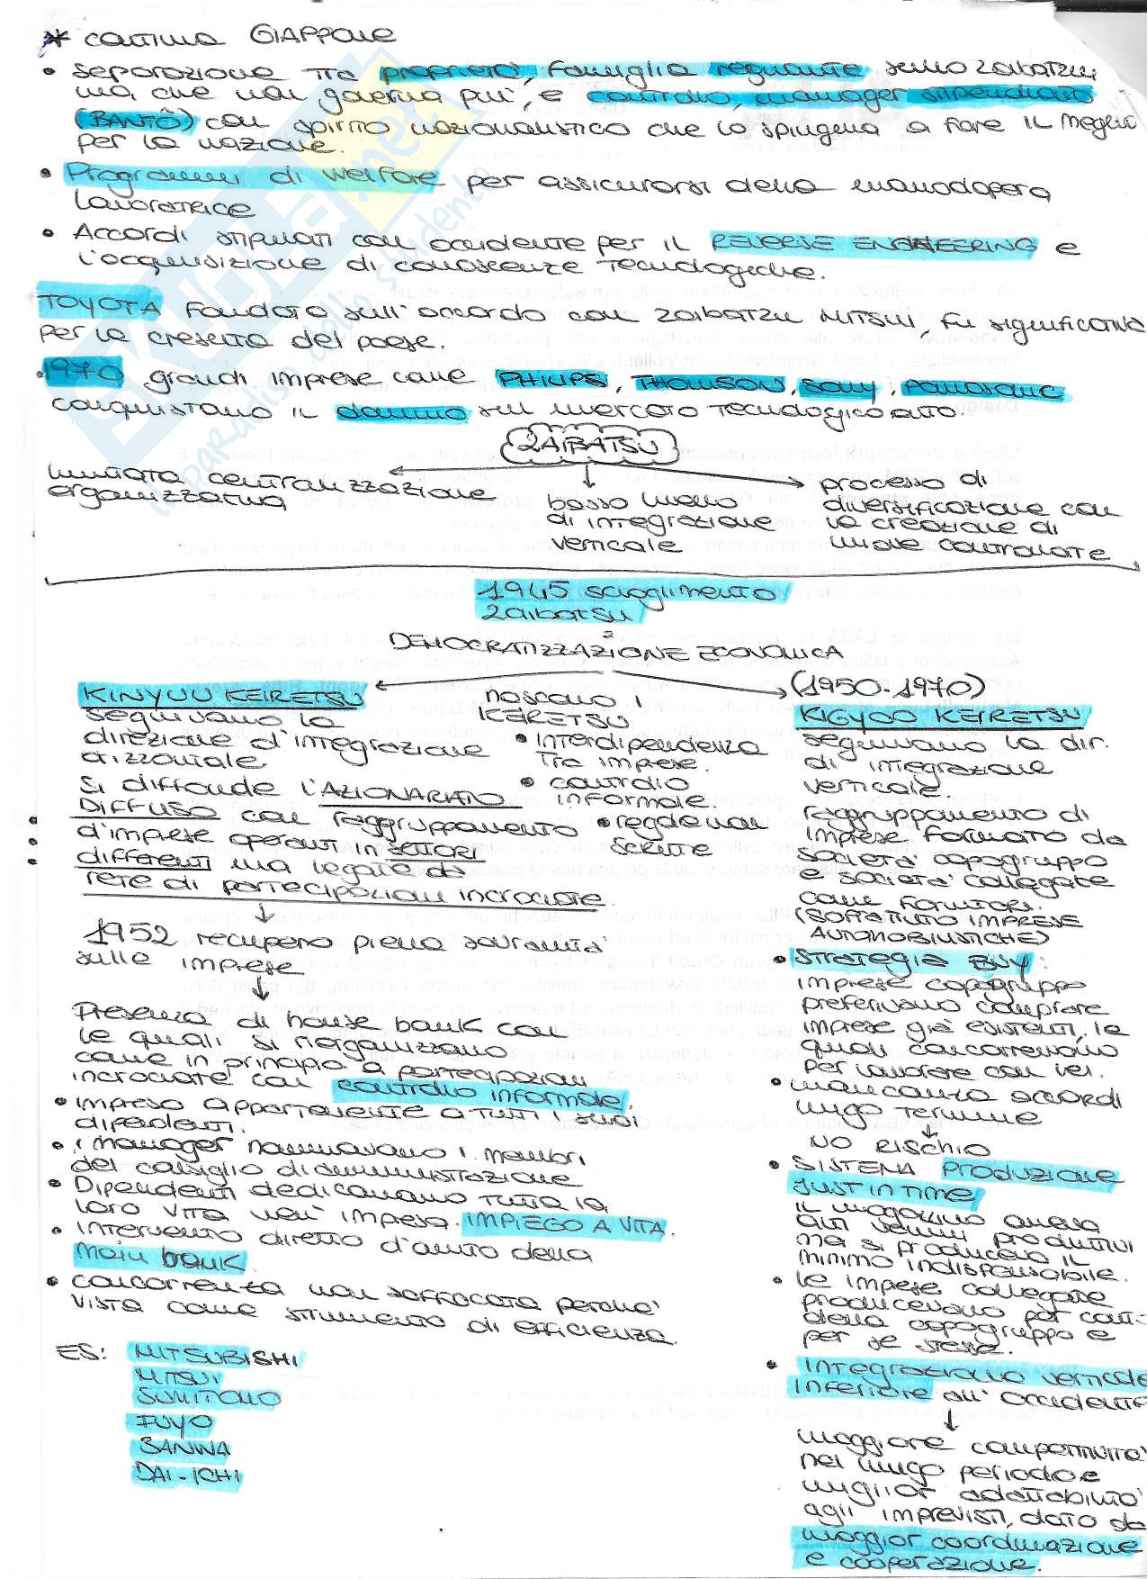 * continua GIAPPONE
• separazione tra proprietà, famiglia regnante sullo zaibatzu
ma che non governa più, e controllo, manager stipendiato
(BANTÔ) con spirito nazionalistico che lo spingeva a fare il meglio
per la nazione.
• Programmi di welfare per assicurarsi della manodopera
lavoratrice
• Accordi stipulati con occidente per il REVERSE ENGINEERING e
l'acquisizione di conoscenze tecnologiche.
TOYOTA fondata sull'accordo con zaibatzu MITSUI, fu significativa
per la crescita del paese.
• 1970 grandi imprese come PHILIPS, THOMSON, SONY, PANASONIC
conquistano il dominio sul mercato tecnologico auto.
ZAIBATSU
limitata centralizzazione
organizzativa
basso livello
di integrazione
verticale
processo di
diversificazione con
la creazione di
nuove controllate
1945 scioglimento
zaibatsu
=
DEMOCRATIZZAZIONE ECONOMICA
KINYUU KEIRETSU
seguivano la
direzione d'integrazione
orizzontale
Si diffonde l'AZIONARIATO
DIFFUSO con raggruppamento
d'imprese operanti in settori
differenti ma legate da
rete di partecipazioni incrociate.
1952 recupero piena sovranità
sulle imprese
Presenza di house bank con
le quali si riorganizzano
come in principio a partecipazioni
incrociate con controllo informale.
• impresa appartenente a tutti i suoi
dipendenti.
• i manager nominavano i membri
del consiglio di amministrazione
• Dipendenti dedicavano tutta la
loro vita nell'impresa. IMPIEGO A VITA.
• intervento diretto d'aiuto della
main bank
• concorrenza non soffocata perchè
vista come strumento di efficienza.
ES: MITSUBISHI
MITSUI
SUMITOMO
FUYO
SANWA
DAI-ICHI
nascono i
KEIRETSU
• interdipendenza
tra imprese.
• controllo
informale.
• regole non
scritte
(1950-1970)
KIGYOO KEIRETSU
seguivano la dir.
di integrazione
verticale.
raggruppamento di
imprese formato da
società capogruppo
e società collegate
come fornitori.
(SOPRATTUTTO IMPRESE
AUTOMOBILISTICHE)
• STRATEGIA BUY:
imprese capogruppo
preferivano comprare
imprese già esistenti, le
quali concorrevano
per lavorare con lei.
• mancanza accordi
lungo termine
NO RISCHIO
• SISTEMA PRODUZIONE
JUST IN TIME
il magazzino aveva
ma si produceva il
minimo indispensabile.
• le imprese collegate
producevano per conto
della capogruppo e
per se stesse.
• Integrazione verticale
inferiore all'occidente
maggiore competitività
nel lungo periodo e
miglior adattabilità
agli imprevisti, dato da
maggior coordinazione
e cooperazione.